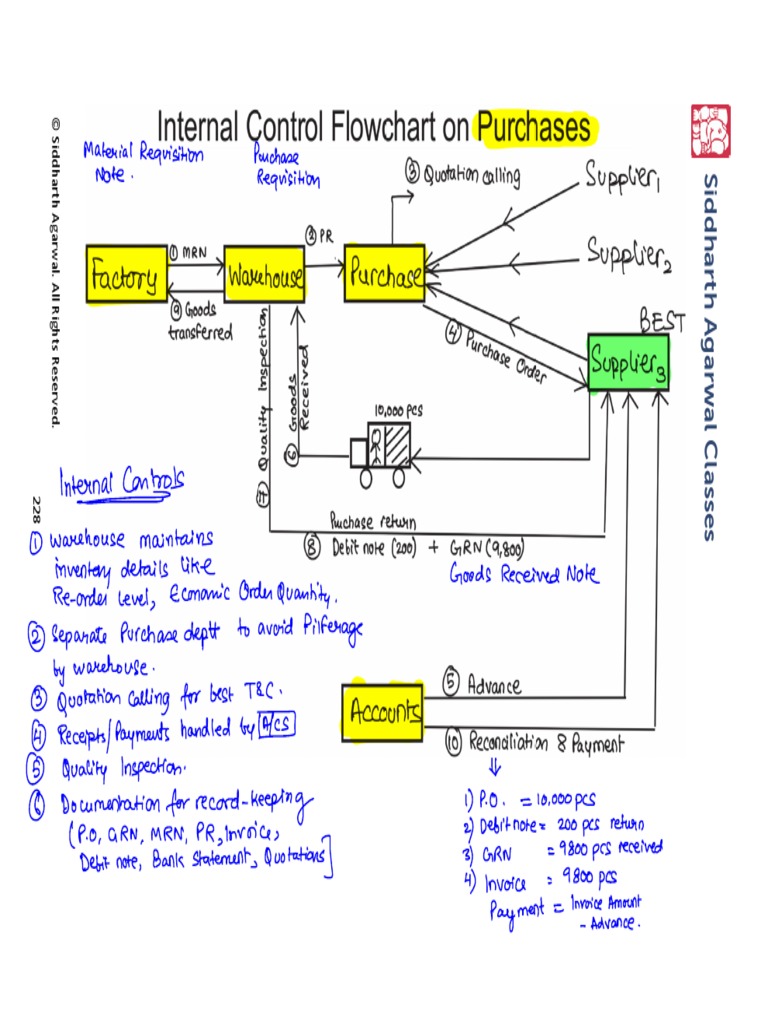 Internal Control Flowchart on Purchases
Material Requisition
Note.
Purchase
Requisition
③ Quotation calling
Supplier1
Supplier2
BEST
Supplier3
Factory
① MRN
Warehouse
② PR
Purchase
⑨ Goods
transferred
④ Purchase Order
⑦ Quality Inspection
⑥ Goods
Received
10,000 PCS
Puchase return
⑧ Debit note (200) + GRN (9,800)
Goods Received Note
Internal Controls
① Warehouse maintains
inventory details like
Re-order Level, Economic Order Quantity.
② Separate Purchase deptt to avoid Pilferage
by warehouse.
③ Quotation Calling for best T&C.
④ Receipts/Payments handled by A/CS
⑤ Quality Inspection.
⑥ Documentation for record-keeping
(P.O, GRN, MRN, PR, Invoice,
Debit note, Bank Statement, Quotations]
Accounts
⑤ Advance
⑩ Reconciliation & Payment
1) P.O. = 10,000 pcs
2) Debit note = 200 pcs return
3) GRN = 9800 pcs received
4) Invoice = 9800 pcs
Payment = Invoice Amount
- Advance.
© Siddharth Agarwal. All Rights Reserved.
228
Siddharth Agarwal Classes